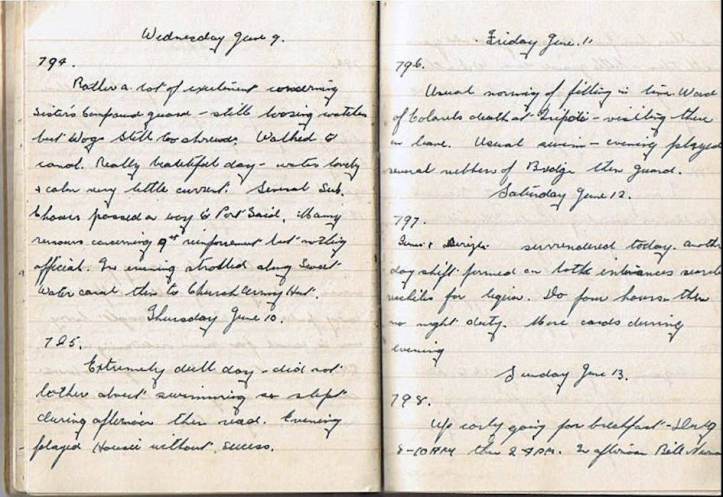 Wednesday June 9.
794.
Rather a lot of excitment concerning
Sister's Compound guard - still loosing watches
but Wogs still too shrewd. Walked to
canal. Really beautiful day - water lovely
& calm very little current. Several Sub.
Chasers passed on way to Port Said. Many
rumours concerning 9th reinforcement but nothing
official. In evening strolled along Sweet
Water canal then to Church Army Hut.
Thursday June 10.
795.
Extremely dull day - did not
bother about swimming so slept
during afternoon then read. Evening
played Housie without success.
Friday June. 11
796.
Usual morning of filling in time. Word
of Colonels death at Tripoli - visiting there
on leave. Usual swim - evening played
several rubbers of Bridge then guard.
Saturday June 12.
797.
surrendered today. another
day shift formed on both entrances search
vechiles for Do four hours then
no night duty. More cards during
evening
Sunday June 13.
798.
Up early going for breakfast - Duty
8-10 AM then 2-4 PM. In afternoon Bill